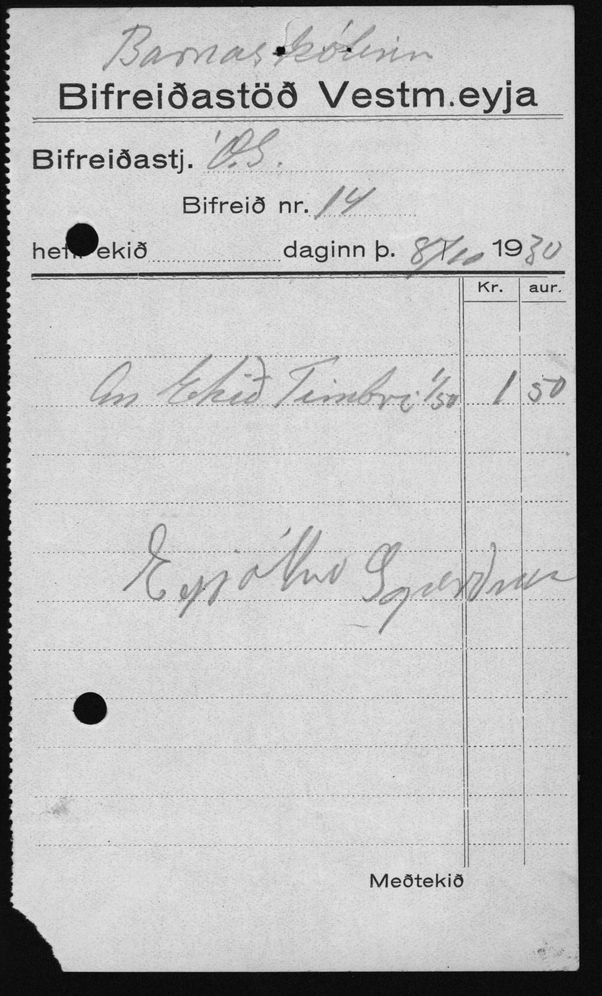 Barnaskólinn
Bifreiðastöð Vestm.eyja
Bifreiðastj. Ó.G.
Bifreið nr. 14
hefir ekið daginn þ. 8/10 1930
Kr. aur.
Ekið Timbri 1/50 1 50
Eyjólfur
Meðtekið